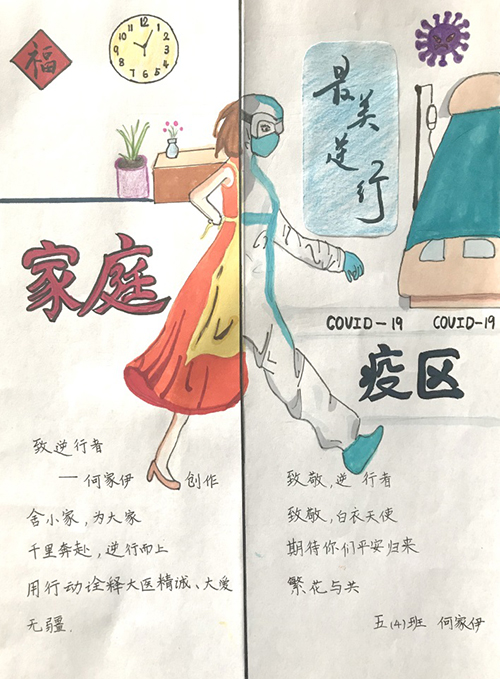 福
12
1
2
3
4
5
6
7
8
9
10
11
家庭
致逆行者
—何家伊 创作
舍小家，为大家
千里奔赴，逆行而上
用行动诠释大医精诚、大爱
无疆.
最美逆行
COVID-19 COVID-19
疫区
致敬，逆行者
致敬，白衣天使
期待你们平安归来
繁花与共
五(4)班 何家伊